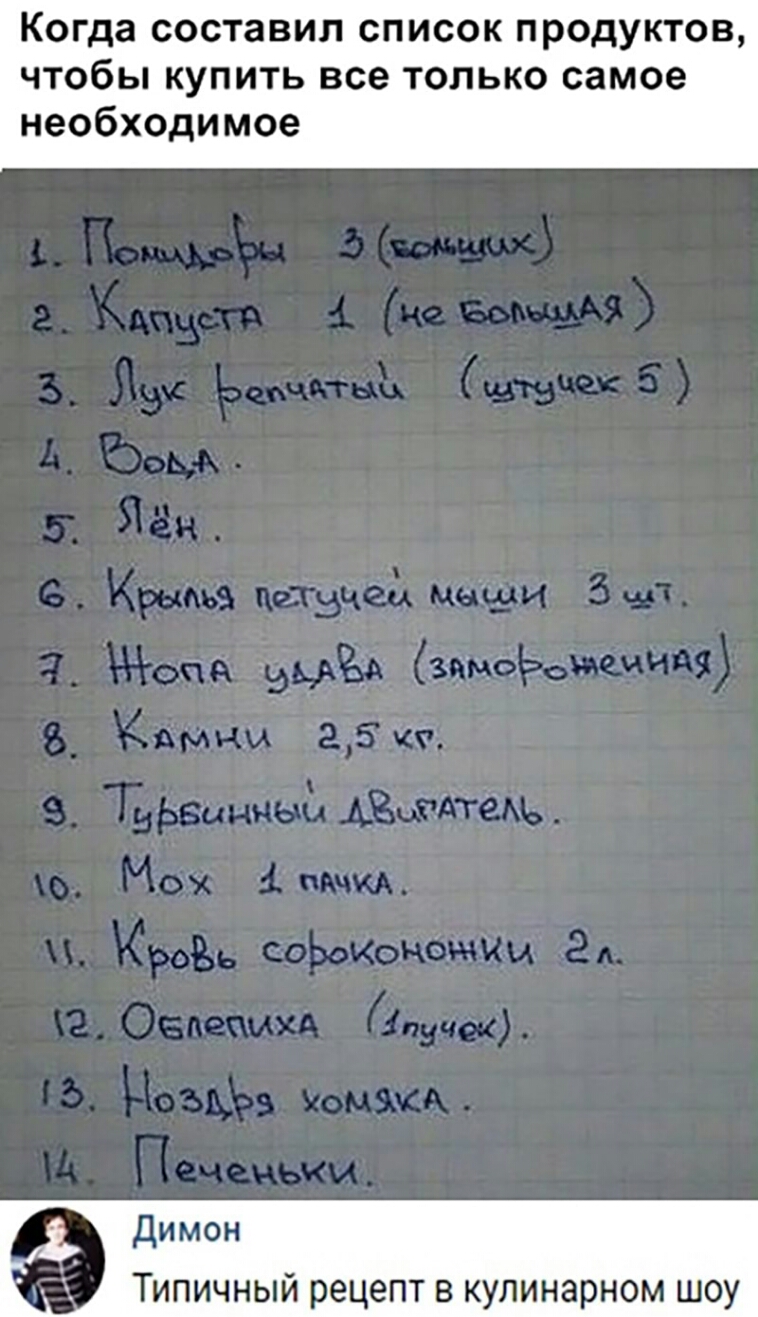 Когда составил список продуктов,
чтобы купить все только самое
необходимое
1. Помидоры 3 (больших)
2. Капуста 1 (не большая)
3. Лук репчатый (штучек 5)
4. Вода.
5. Лён.
6. Крылья летучей мыши 3 шт.
7. Жопа удава (замороженная)
8. Камни 2,5 кг.
9. Турбинный двигатель.
10. Мох 1 пачка.
11. Кровь сороконожки 2 л.
12. Облепиха (1 пучек).
13. Ноздря хомяка.
14. Печеньки.
Димон
Типичный рецепт в кулинарном шоу